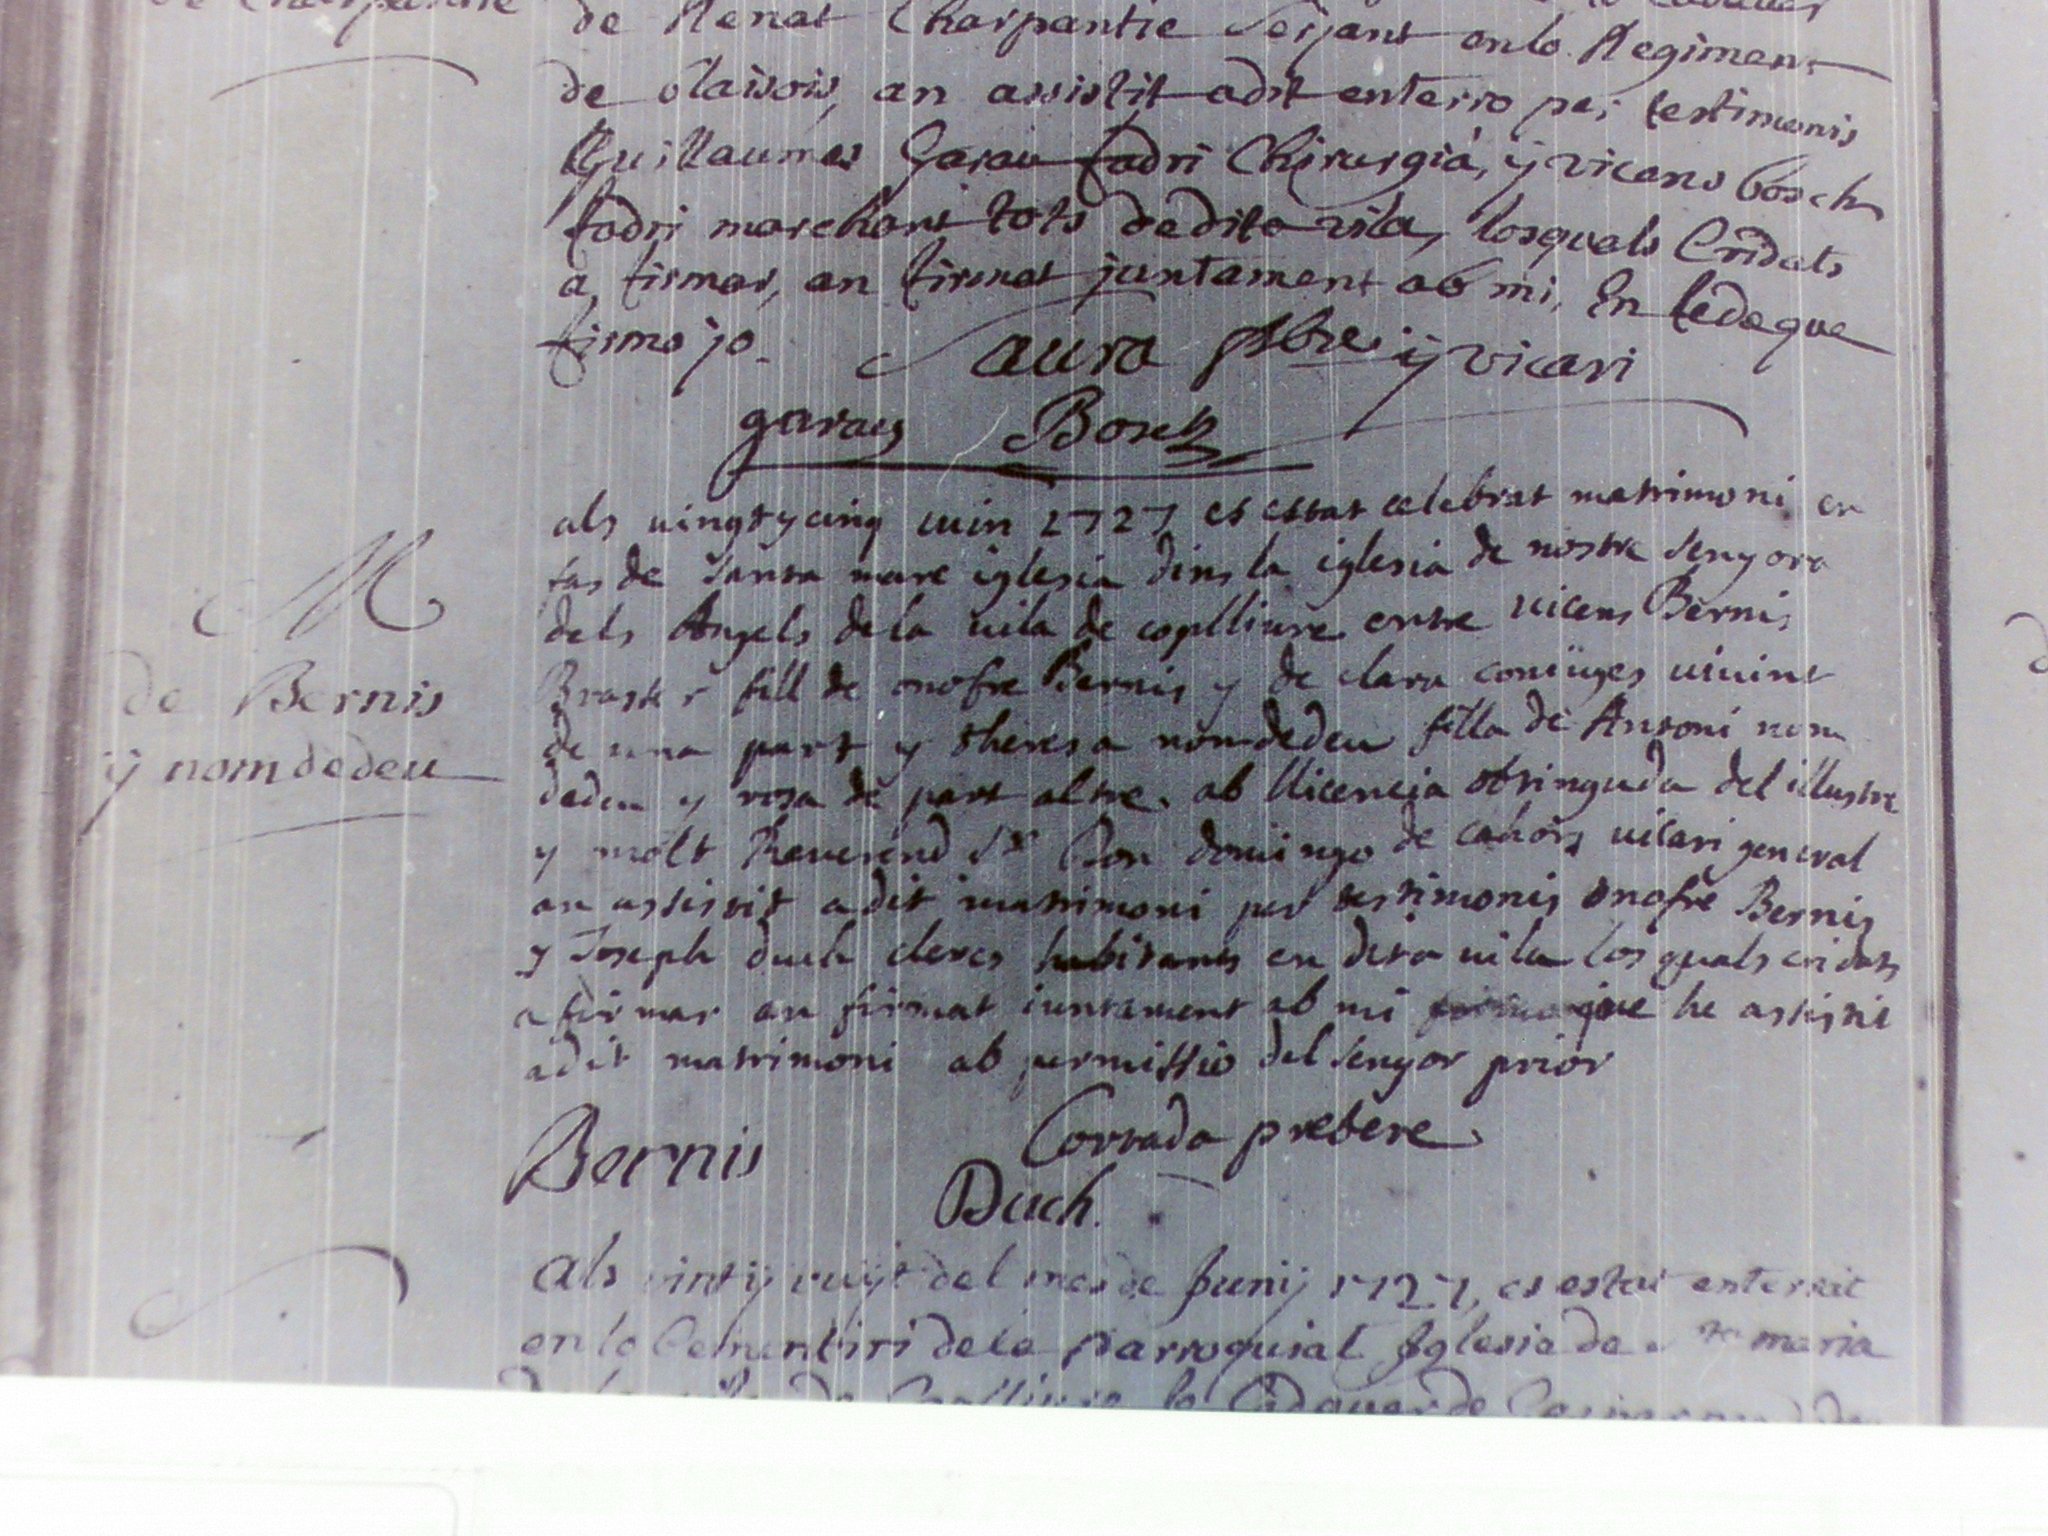 de Renat Charpantie Serjant en lo Regiment
de blaisois, an assistit a dit enterro per testimonis
Guillaumes Garau fadri Chirurgia, ÿ vicens bosch
fadri marchant tots de dita vila, losquals Cridats
a, firmar, an firmat juntament ab mi, En fe de que
firmo jo. Saura pbre ÿ vicari
garau Bosch
als uingt y cinq iuin 1727 es estat celebrat matrimoni en
fas de santa mare iglesia dins la iglesia de nostre senyora
dels Angels de la uila de coplliure entre uicens Bernis
M
de Bernis
ÿ nomdedeu
fill de onofre Bernis y de clara coniüges uiuint
de una part y theresa nomdedeu filla de Antoni nom
dedeu y rosa de part altre. ab llicencia obtinguda del illustre
y molt Reverend Sr Don domingo de cahors uicari general
an assistit a dit matrimoni per testimonis onofre Bernis
y Joseph duch clercs habitants en dita uila los quals cridats
a firmar an firmat iuntament ab mi que he assistit
a dit matrimoni ab permissio del senyor prior
Bernis Corrada prebere
Duch.
Als vint ÿ vuÿt del mes de Junÿ 1727, es estat enterrat
en lo Cementiri de la parroquial Iglesia de sta maria